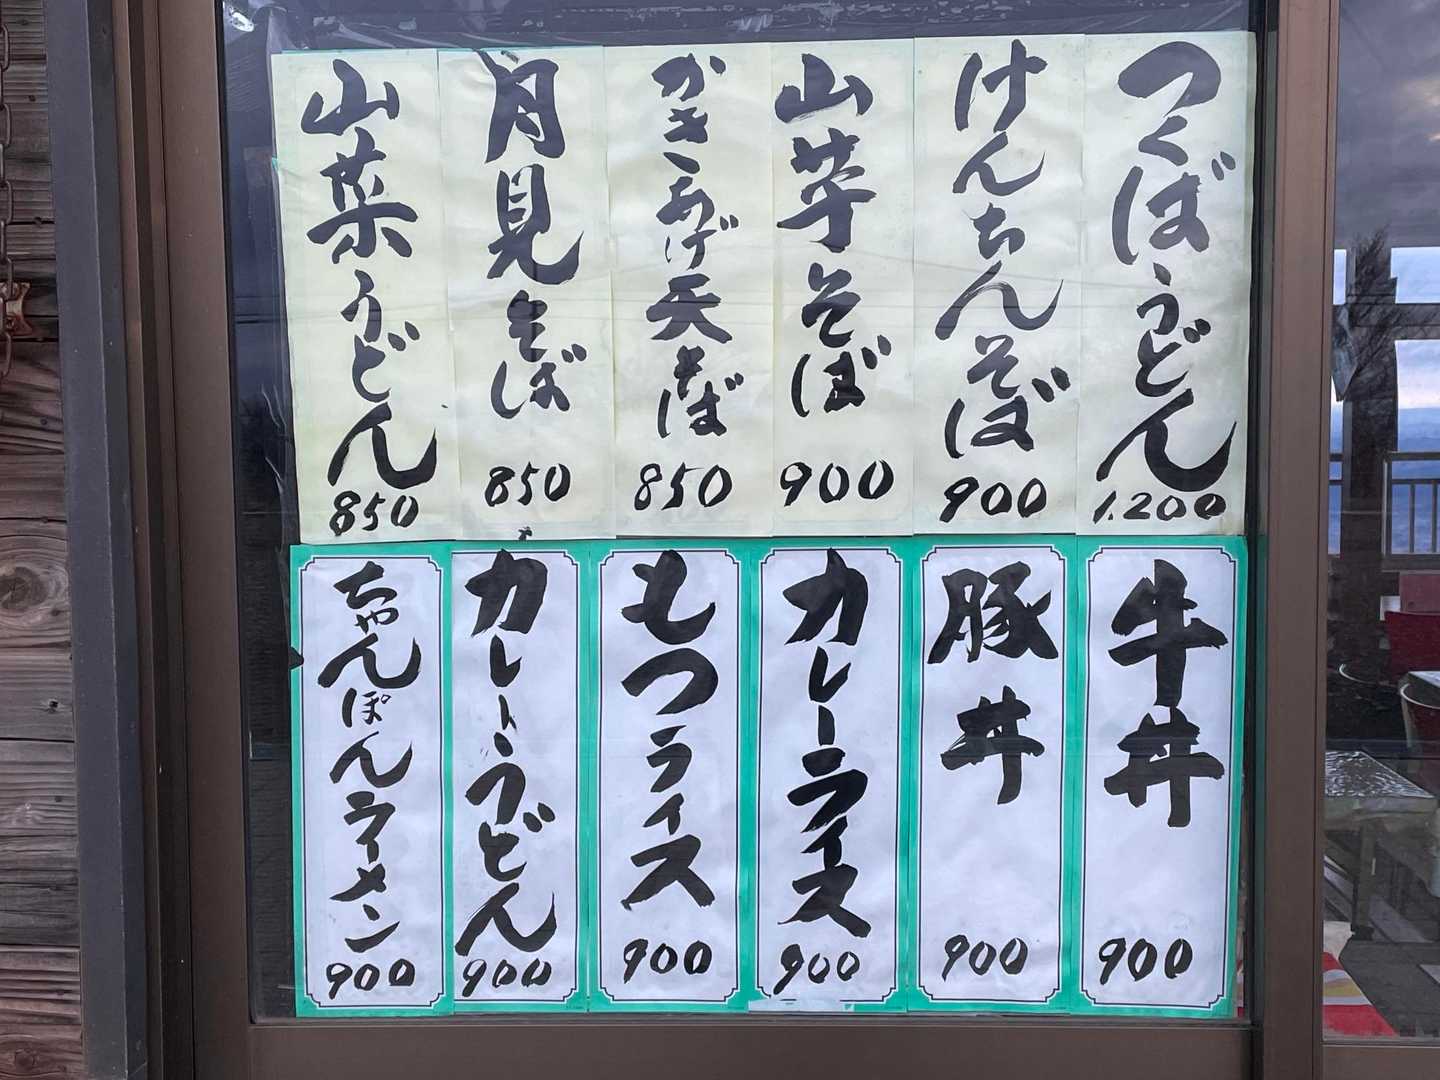 つくばうどん
1.200
けんちんそば
900
山芋そば
900
かきあげ天そば
850
月見そば
850
山菜うどん
850
牛丼
900
豚丼
900
カレーライス
900
もつライス
900
カレーうどん
900
ちゃんぽんラーメン
900